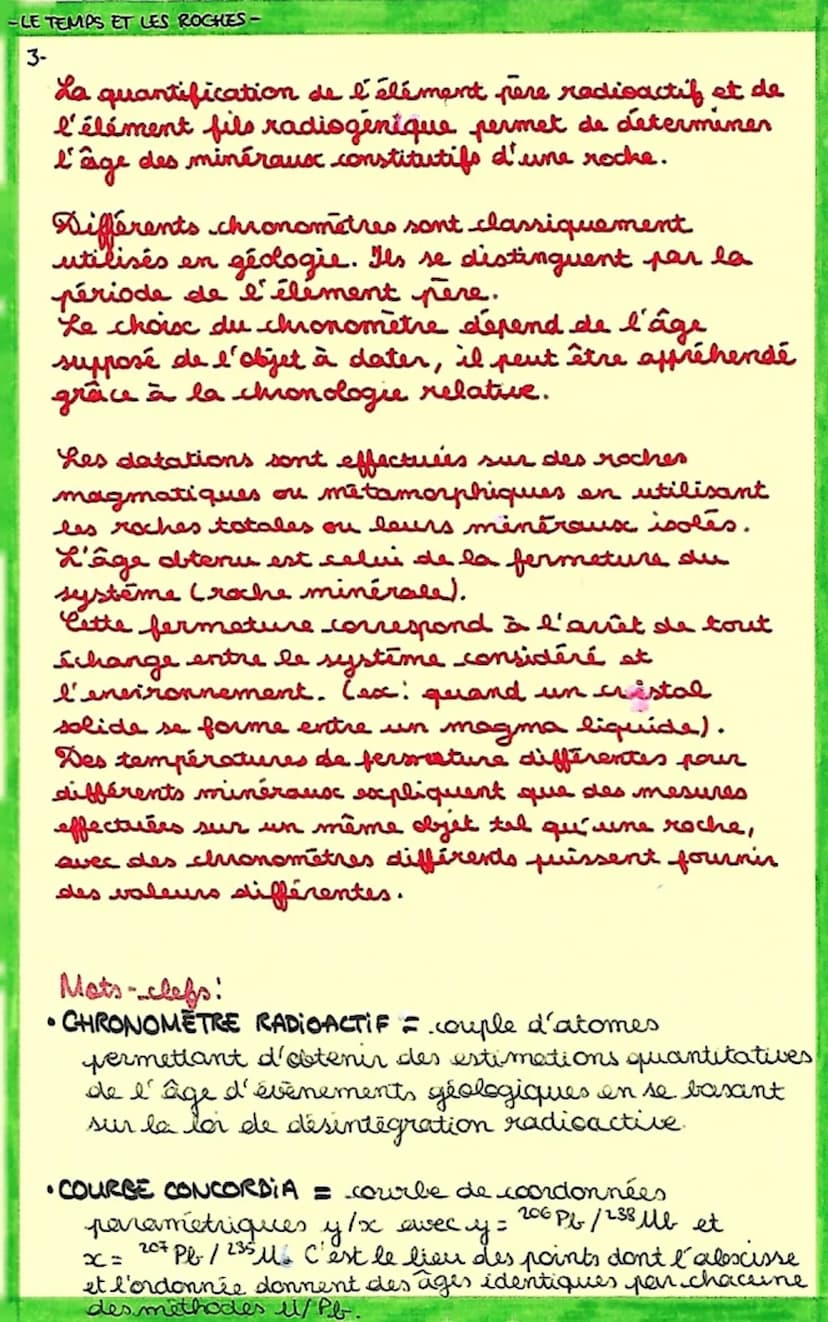 -LE TEMPS ET LES ROCHES-
3-
La quantification de l'élément père radioactif et de
l'élément fils radiogénique permet de déterminer
l'âge des minéraux constitutifs d'une roche.
Différents chronomètres sont classiquement
utilisés en géologie. Ils se distinguent par la
période de l'élément père.
Le choix du chronomètre dépend de l'âge
supposé de l'objet à dater, il peut être appréhendé
grâce à la chronologie relative.
Les datations sont effectuées sur des roches
magmatiques ou métamorphiques en utilisant
les roches totales ou leurs minéraux isolés.
L'âge obtenu est celui de la fermeture du
système (roche minérale).
Cette fermeture correspond à l'arrêt de tout
échange entre le système considéré et
l'environnement. (ex: quand un cristal
solide se forme entre un magma liquide).
Des températures de fermeture différentes pour
différents minéraux expliquent que des mesures
effectuées sur un même objet tel qu'une roche,
avec des chronomètres différents puissent fournir
des valeurs différentes.
Mots-clefs:
• CHRONOMÈTRE RADIOACTIF = couple d'atomes
permettant d'obtenir des estimations quantitatives
de l'âge d'évènements géologiques en se basant
sur la loi de désintégration radioactive.
• COURBE CONCORDIA = courbe de coordonnées
paramétriques y/x avec y = ²⁰⁶Pb/²³⁸U et
x = ²⁰⁷Pb/²³⁵U. C'est le lieu des points dont l'abscisse
et l'ordonnée donnent des âges identiques par chacune
des méthodes U/Pb.